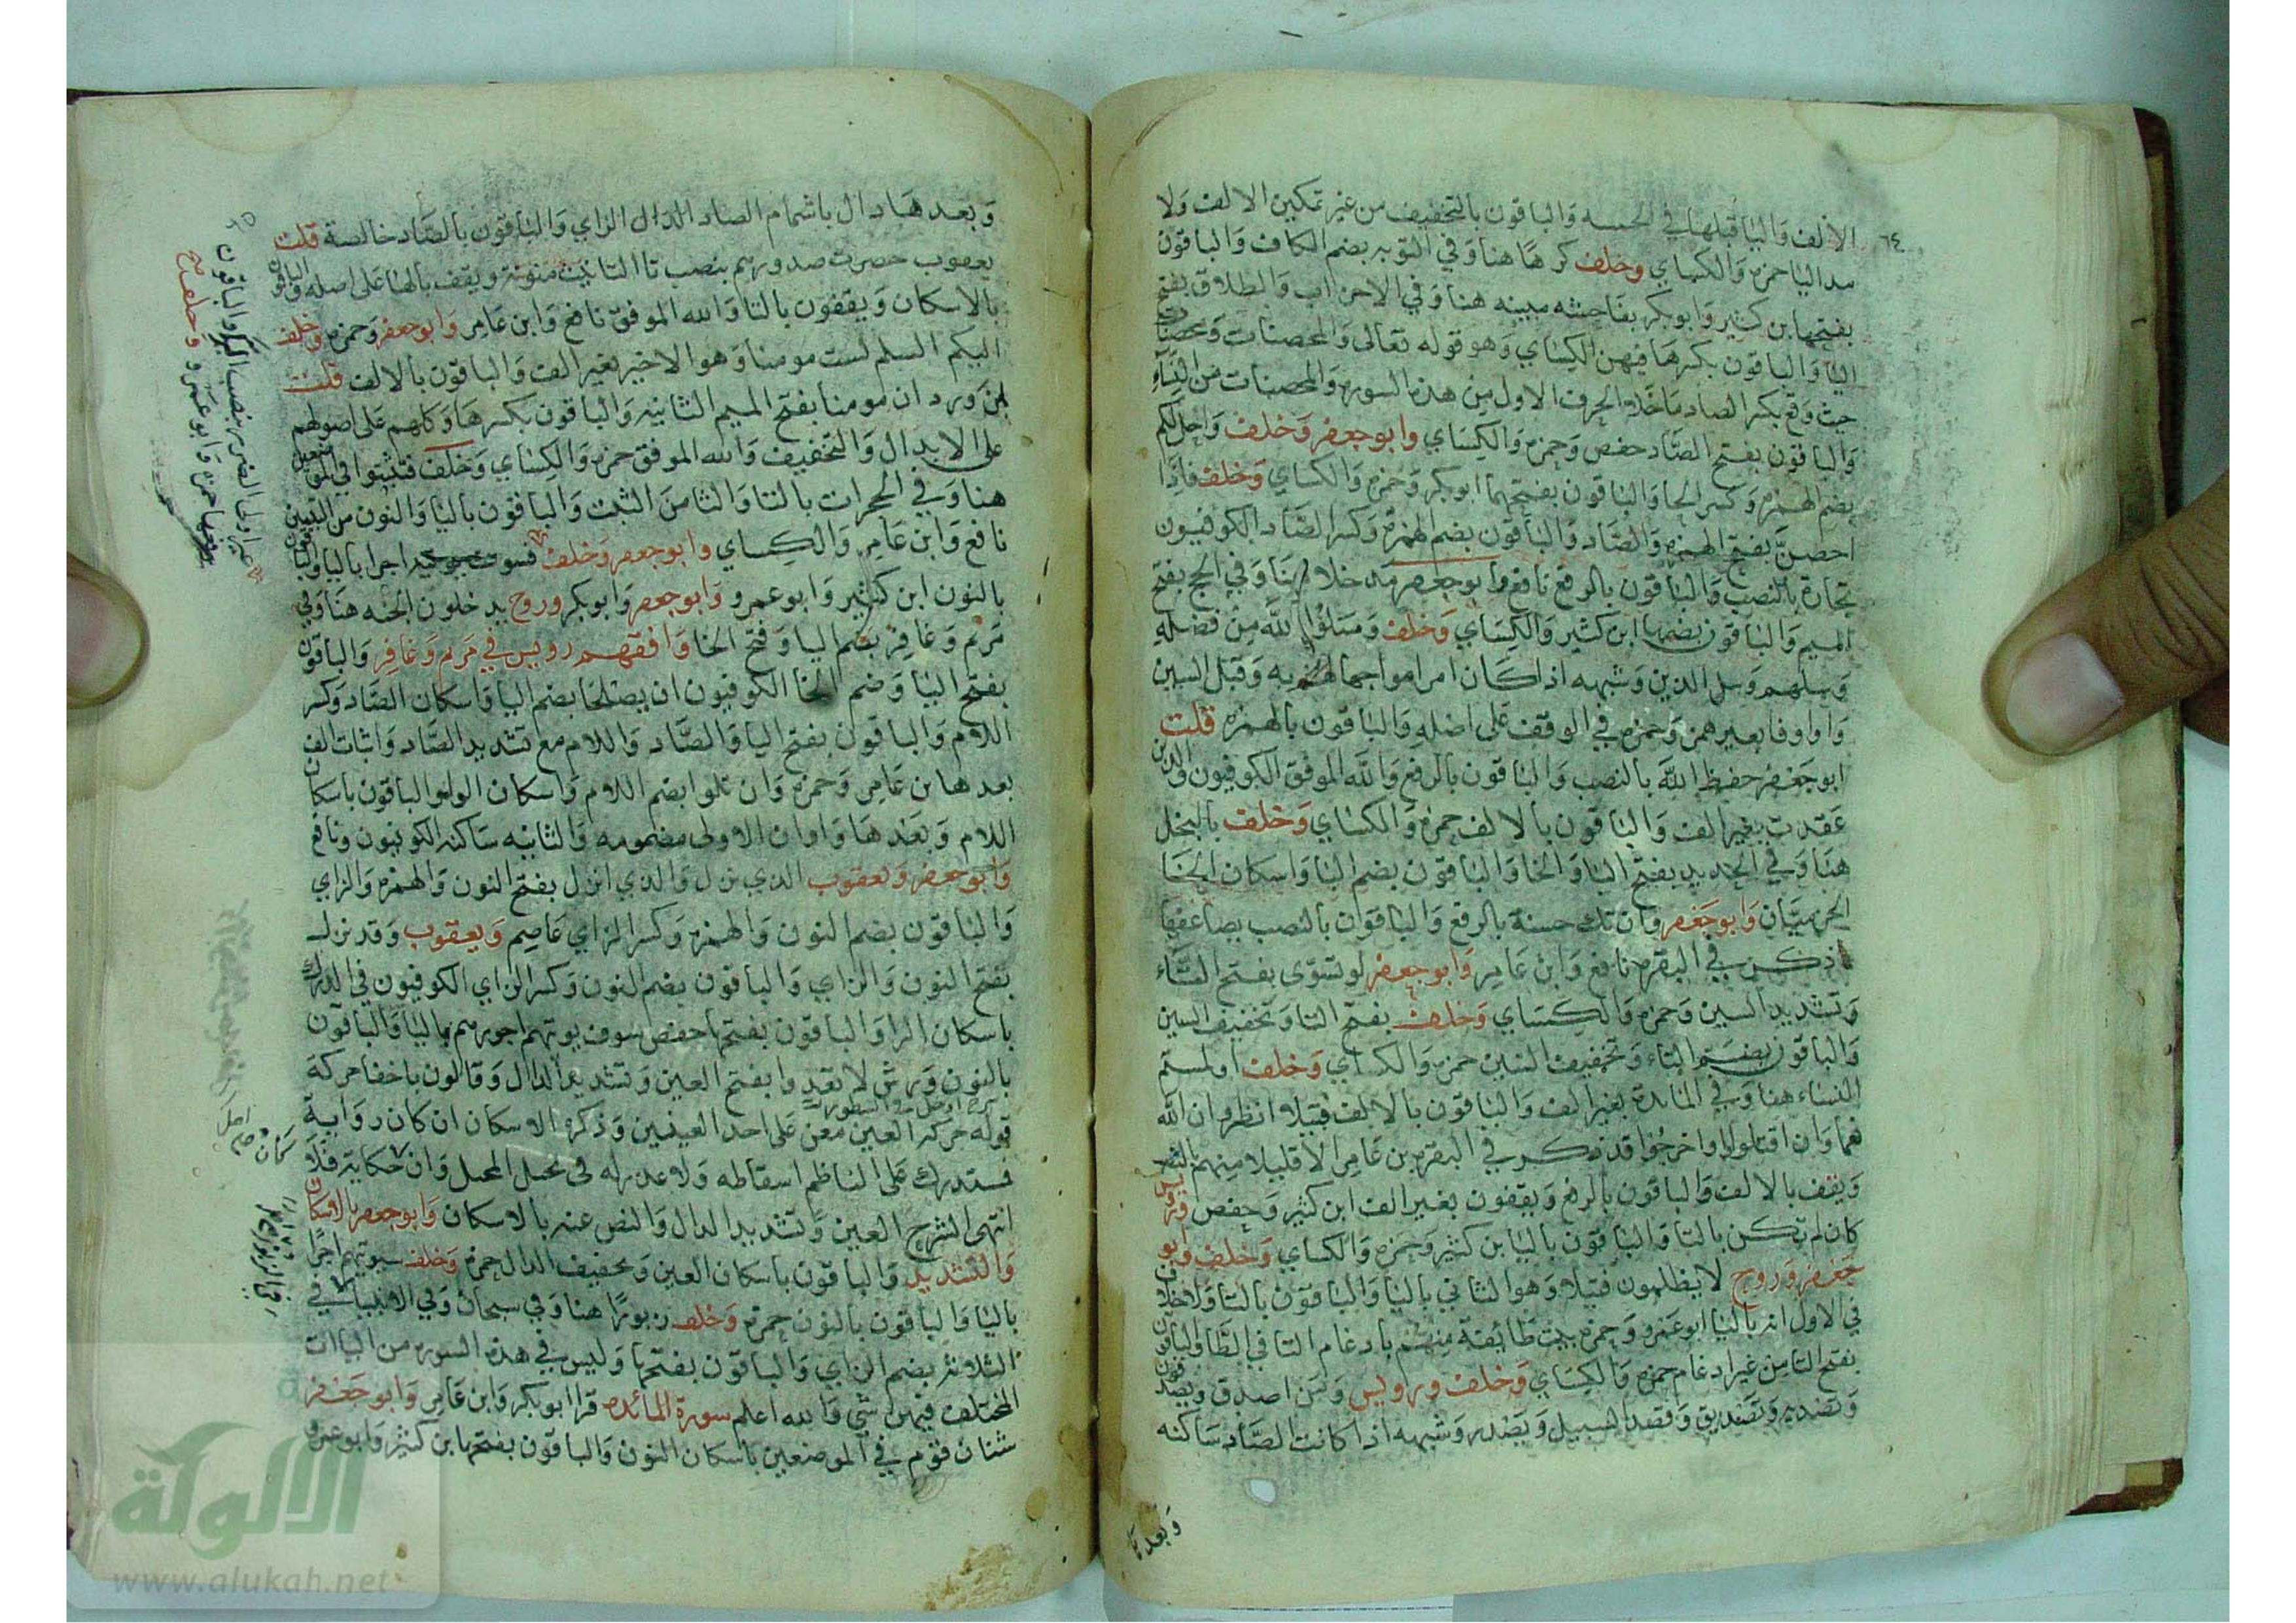 ٦٤
الالف واليا قبلها في الخمسه والباقون بالتخفيف من غير تمكين الالف ولا
مد اليا حمزه والكساي وخلف كرها هنا وفي التوبه بضم الكاف والباقون
بفتحها ابن كثير وابو بكر بفاحشه مبينه هنا وفي الاحزاب والطلاق بفتح
اليا والباقون بكسرها فيهن الكساي وهو قوله تعالى والمحصنات ومحصنات
حيث وقع بكسر الصاد ما خلا الحرف الاول من هذه السوره والمحصنات من النساء
والباقون بفتح الصاد حفص وحمزه والكساي وابو جعفر وخلف واحل لكم
بضم الهمزه وكسر الحا والباقون بفتحهما ابو بكر وحمزه والكساي وخلف فاذا
احصن بفتح الهمزه والصاد والباقون بضم الهمزة وكسر الصاد الكوفيون
تجارة بالنصب والباقون بالرفع نافع وابو جعفر مدخلا هنا وفي الحج بفتح
الميم والباقون بضمها ابن كثير والكساي وخلف وسلوا الله من فضله
وسلهم وسل الذين وشبهه اذا كان امرا مواجها به وقبل السين
واو او فا بغير همز وحمزه في الوقف على اصله والباقون بالهمزه قلت
ابو جعفر حفظ الله بالنصب والباقون بالرفع والله الموفق الكوفيون والذين
عقدت بغير الف والباقون بالالف حمزة والكساي وخلف بالبخل
هنا وفي الحديد بفتح البا والخا والباقون بضم البا واسكان الخا
الحرميان وابو جعفر وان تك حسنة بالرفع والباقون بالنصب يضاعفها
ذكر في البقره نافع وابن عامر وابو جعفر لو تسوى بفتح التاء
وتشديد السين وحمزه والكساي وخلف بفتح التا وتخفيف السين
والباقون بضم التاء وتخفيف السين حمزه والكساي وخلف او لمستم
النساء هنا وفي المائدة بغير الف والباقون بالالف فتيلا انظر وان الله
نعما وان اقتلوا او اخرجوا قد ذكر في البقره بن عامر الا قليلا منهم بالنصب
ويقف بالالف والباقون بالرفع ويقفون بغير الف ابن كثير وحفص ورويس
كان لم تكن بالتا والباقون باليا بن كثير وحمزه والكساي وخلف وابو
جعفر وروح لا يظلمون فتيلا وهو الثاني باليا والباقون بالتا ولا خلاف
في الاول انه باليا ابو عمرو وحمزه بيت طائفة منهم بادغام التا في الطا والباقون
بفتح التا من غير ادغام حمزه والكساي وخلف ورويس ومن اصدق ويصدفون
وتصديه وتصديق وقصد السبيل ويصدر وشبهه اذا كانت الصاد ساكنه
وبعدها
٦٥
وبعدها دال باشمام الصاد الدال الزاي والباقون بالصاد خالصة قلت
يعقوب حصرت صدورهم بنصب تا التانيث منونة ويقف بالها على اصله والباقون
بالاسكان ويقفون بالتا والله الموفق نافع وابن عامر وابو جعفر وحمزه وخلف
اليكم السلم لست مومنا وهو الاخير بغير الف والباقون بالالف قلت
ابن وردان مومنا بفتح الميم الثانيه والباقون بكسرها وكلهم على اصولهم
على الابدال والتخفيف والله الموفق حمزه والكساي وخلف فتثبتوا في الموضعين
هنا وفي الحجرات بالتا والثا من الثبت والباقون باليا والنون من التبيين
نافع وابن عامر والكساي وابو جعفر وخلف فسوف يوتيه اجرا باليا والباقون
بالنون ابن كثير وابو عمرو وابو جعفر وابو بكر وروح يدخلون الجنه هنا وفي
مريم وغافر بضم اليا وفتح الخا وافقهم رويس في مريم وغافر والباقون
بفتح اليا وضم الخا الكوفيون ان يصلحا بضم اليا واسكان الصاد وكسر
اللام والباقون بفتح اليا والصاد واللام مع تشديد الصاد واثبات الف
بعدها بن عامر وحمزه وان تلوا بضم اللام واسكان الواو والباقون باسكان
اللام وبعدها واوان الاولى مضمومه والثانيه ساكنه الكوفيون ونافع
وابو جعفر ويعقوب الذي نزل والذي انزل بفتح النون والهمزه والزاي
والباقون بضم النون والهمزه وكسر الزاي عاصم ويعقوب وقد نزل
بفتح النون والزاي والباقون بضم النون وكسر الزاي الكوفيون في الدرك
باسكان الرا والباقون بفتحها حفص سوف يوتيهم اجورهم باليا والباقون
بالنون ورش لا تعدوا بفتح العين وتشديد الدال وقالون باخفا حركة
قوله حركه العين معن على احد العينين وذكره الاسكان ان كان رواية
فمستدرك على الناظم اسقاطه ولا عدرله في وان حكاية فلا
انتهى الشرح العين وتشديد الدال والنص عنه بالاسكان وابو جعفر بالاسكان
والتشديد والباقون باسكان العين وتخفيف الدال حمزة وخلف سيوتيهم اجرا
باليا والباقون بالنون حمزة وخلف زبورا هنا وفي سبحان وفي الانبيا في
الثلاثه بضم الزاي والباقون بفتحها وليس في هذه السوره من الياات
المختلف فيهن شي والله اعلم سورة المائده قرا ابو بكر وابن عامر وابو جعفر
شنان قوم في الموضعين باسكان النون والباقون بفتحها بن كثير وابو عمرو
غير اولي الضرر بنصب الرا والباقون
برفعها حمزه وابو عمرو وخلف
الألوكة
www.alukah.net